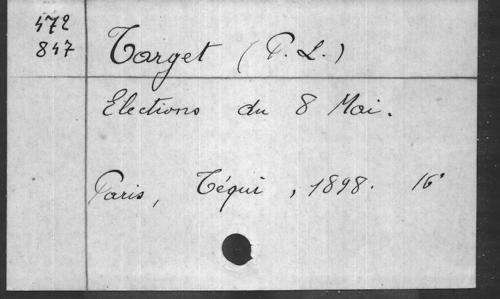 472
847
Target (P. L.)
Elections du 8 Mai.
Paris, Téqui, 1898. 16°